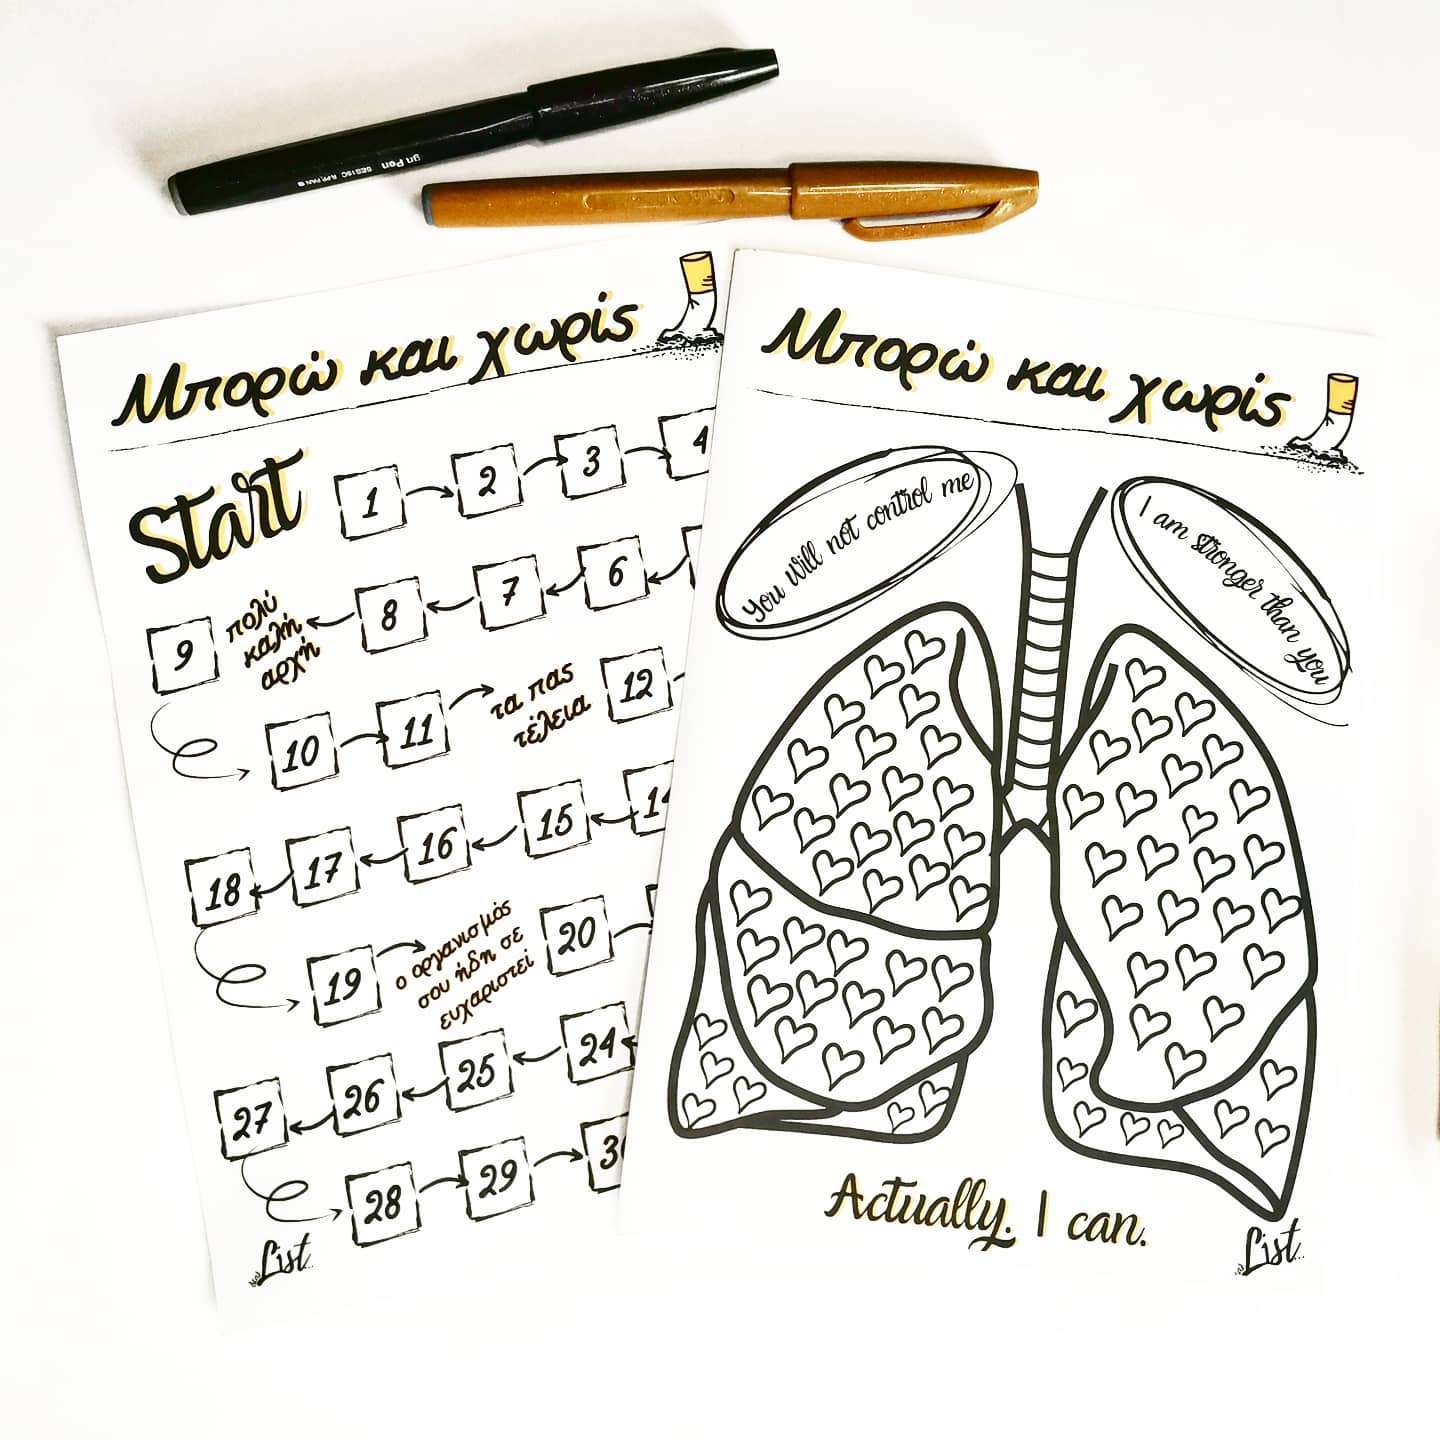 gn Pen
SES15C
Μπορώ και χωρίς
Start
1 2 3 4
9 πολύ καλή αρχή 8 7 6
10 11 τα πας τέλεια 12
18 17 16 15 14
19 ο οργανισμός σου ήδη σε ευχαριστεί 20
27 26 25 24
28 29
My List...
Μπορώ και χωρίς
You will not control me
I am stronger than you
Actually. I can.
List...